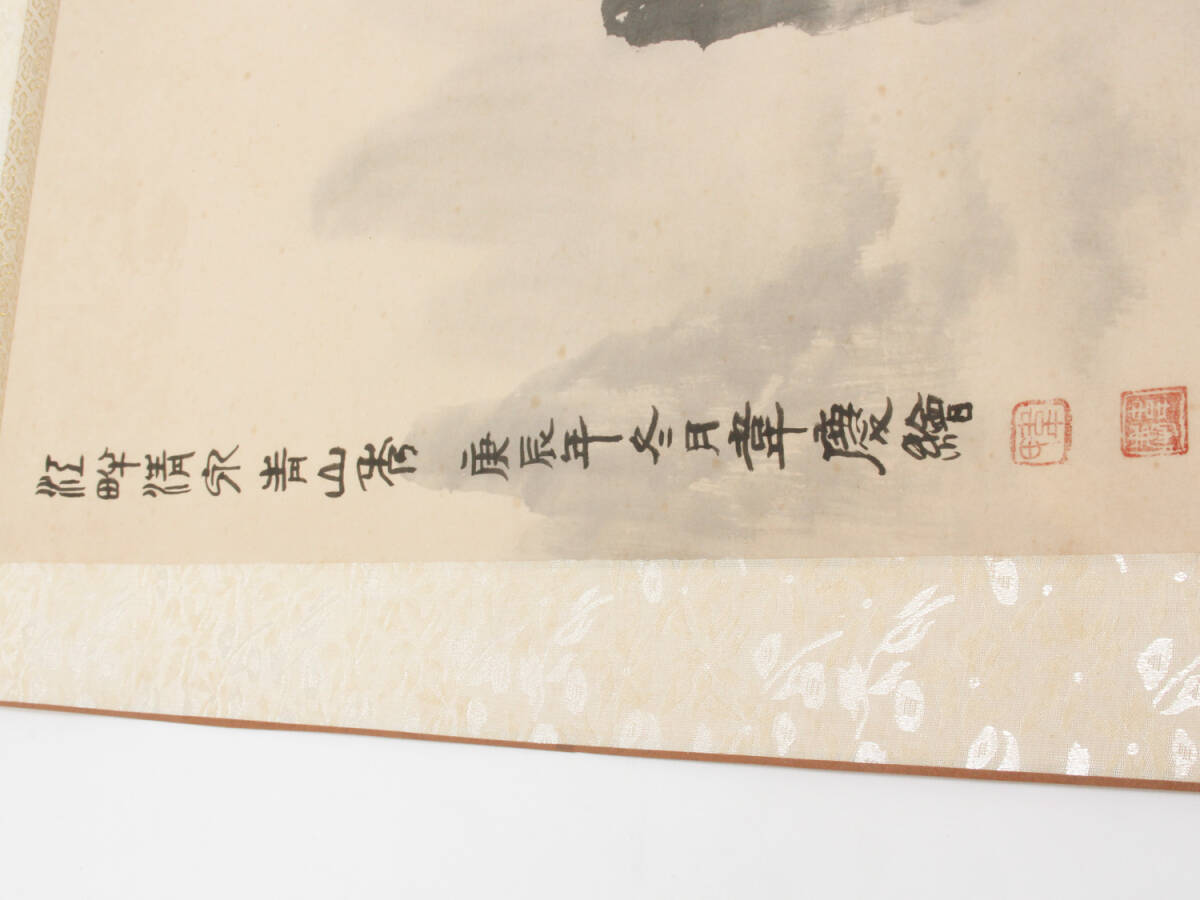 江畔清泉青山秀 庚辰年冬月章慶繪